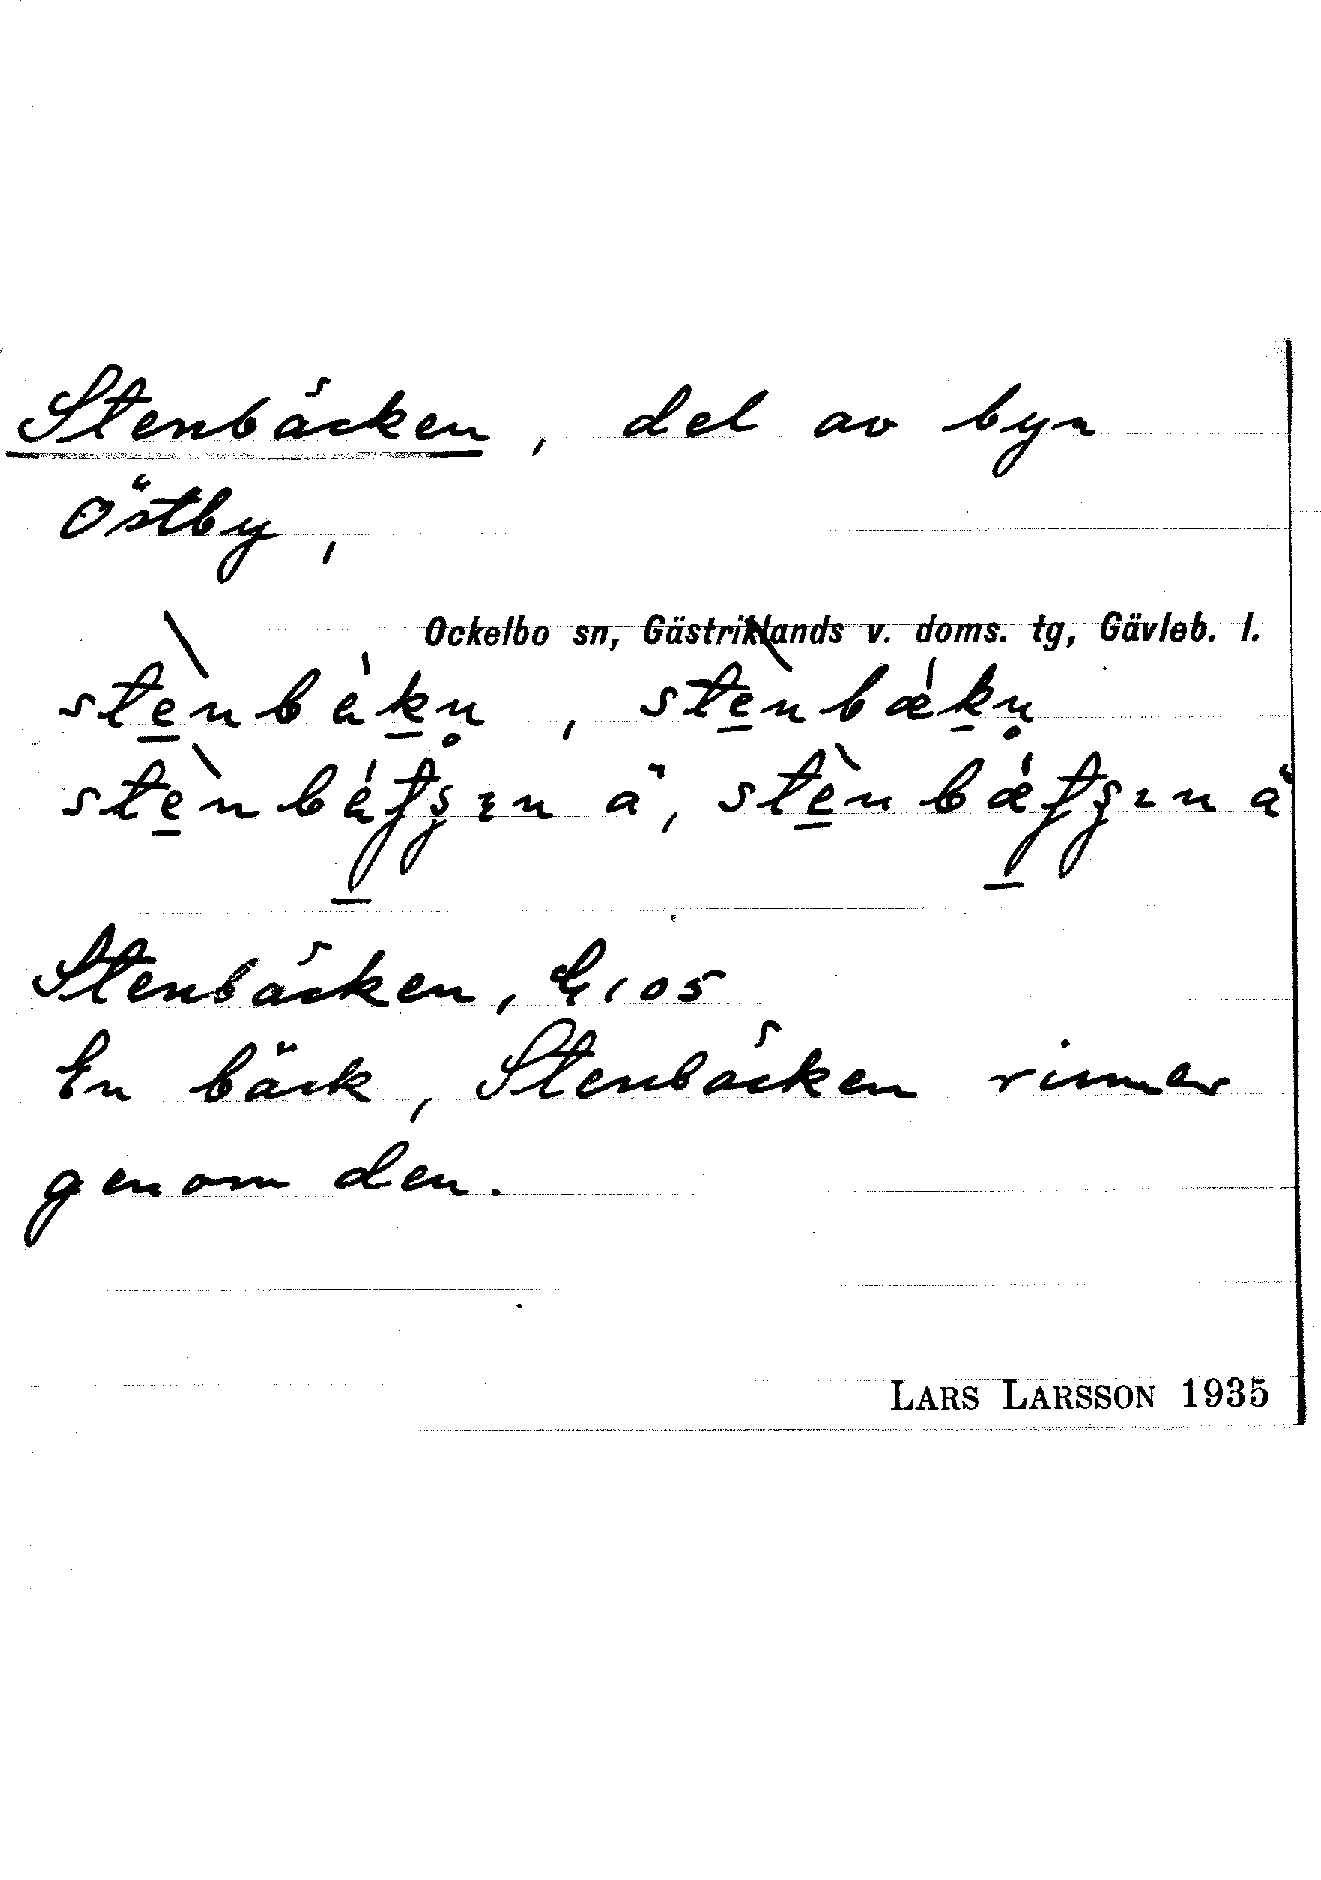 Stenbäcken, del av byn
Östby,
Ockelbo sn, Gästriklands v. doms. tg, Gävleb. l.
Stenbäcken, G 105
En bäck, Stenbäcken rinner
genom den.
LARS LARSSON 1935